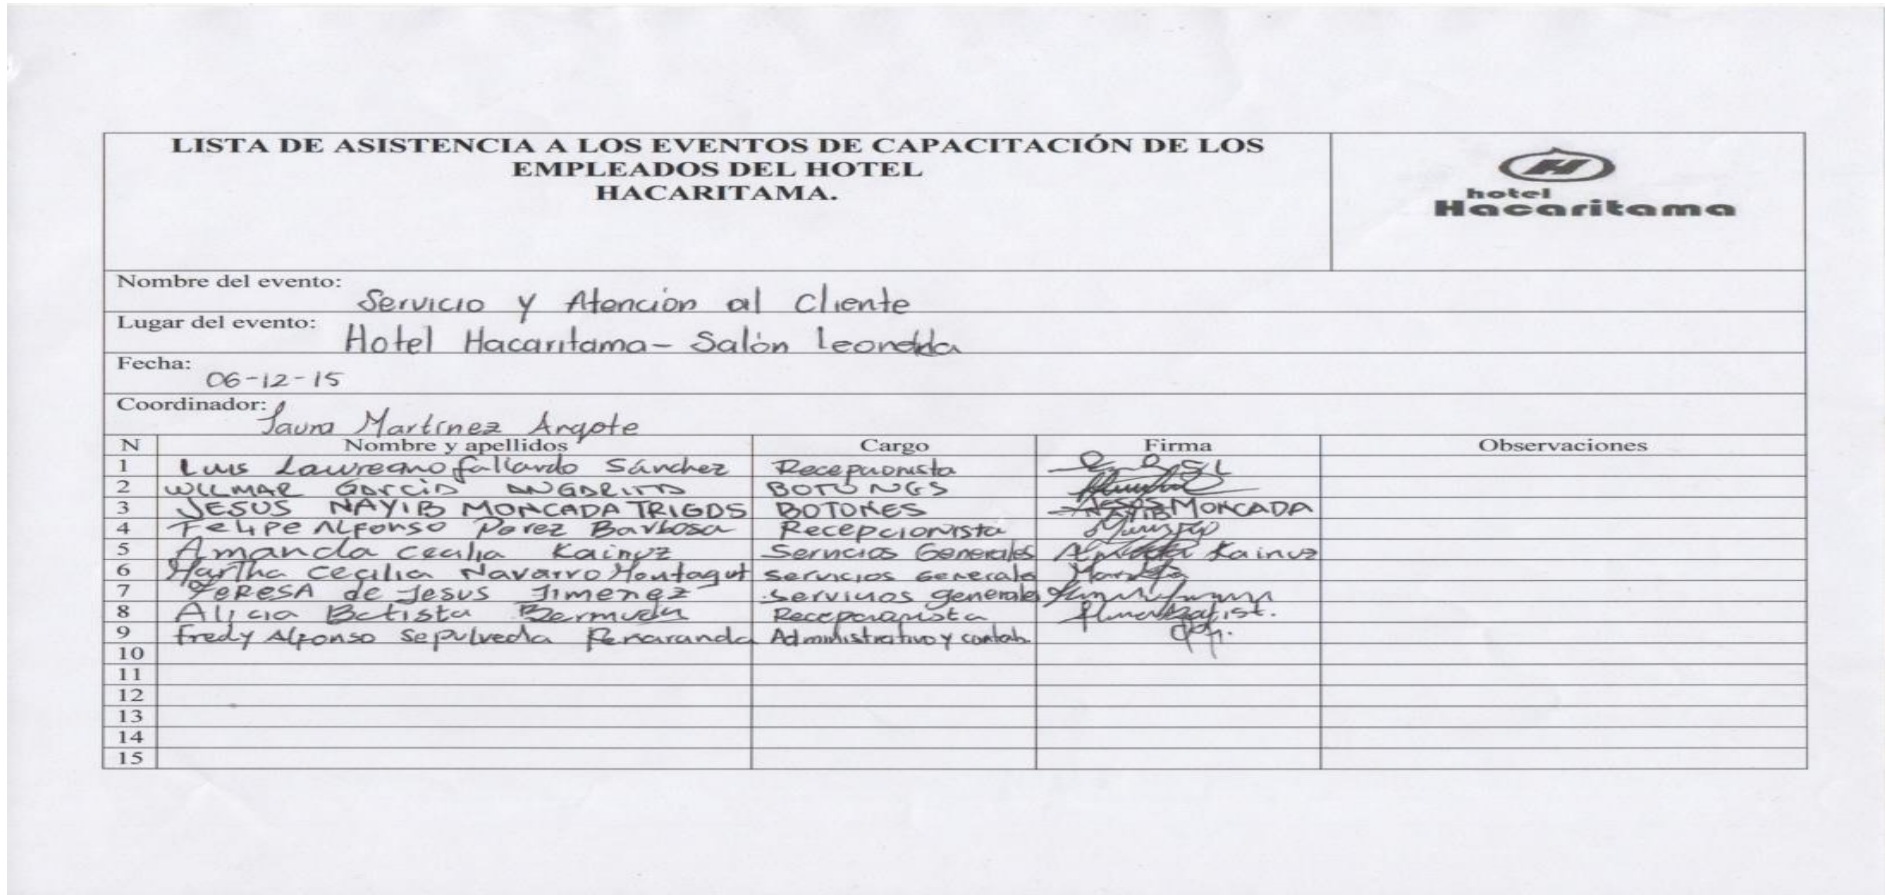 LISTA DE ASISTENCIA A LOS EVENTOS DE CAPACITACIÓN DE LOS
EMPLEADOS DEL HOTEL
HACARITAMA.
H
hotel
Hacaritama
Nombre del evento:
Servicio y Atención al Cliente
Lugar del evento:
Hotel Hacaritama - Salón Leonelda
Fecha:
06-12-15
Coordinador:
Laura Martínez Angote
N Nombre y apellidos Cargo Firma Observaciones
1 Luis Laureano Gallardo Sánchez Recepcionista
2 WILMAR GARCIA ANGARITA BOTONES
3 JESUS NAYIB MONCADA TRIGOS BOTONES JESUS NAYIB MONCADA
4 Felipe Alfonso Perez Barbosa Recepcionista
5 Amanda Cecilia Kainuz Servicios Generales Amanda Kainuz
6 Martha Cecilia Navarro Montagut Servicios Generale
7 TERESA de Jesus Jimenez Servicios generale
8 Alicia Batista Bermudez Recepcionista
9 Fredy Alfonso Sepulveda Penaranda Administrativo y contab.
10
11
12
13
14
15